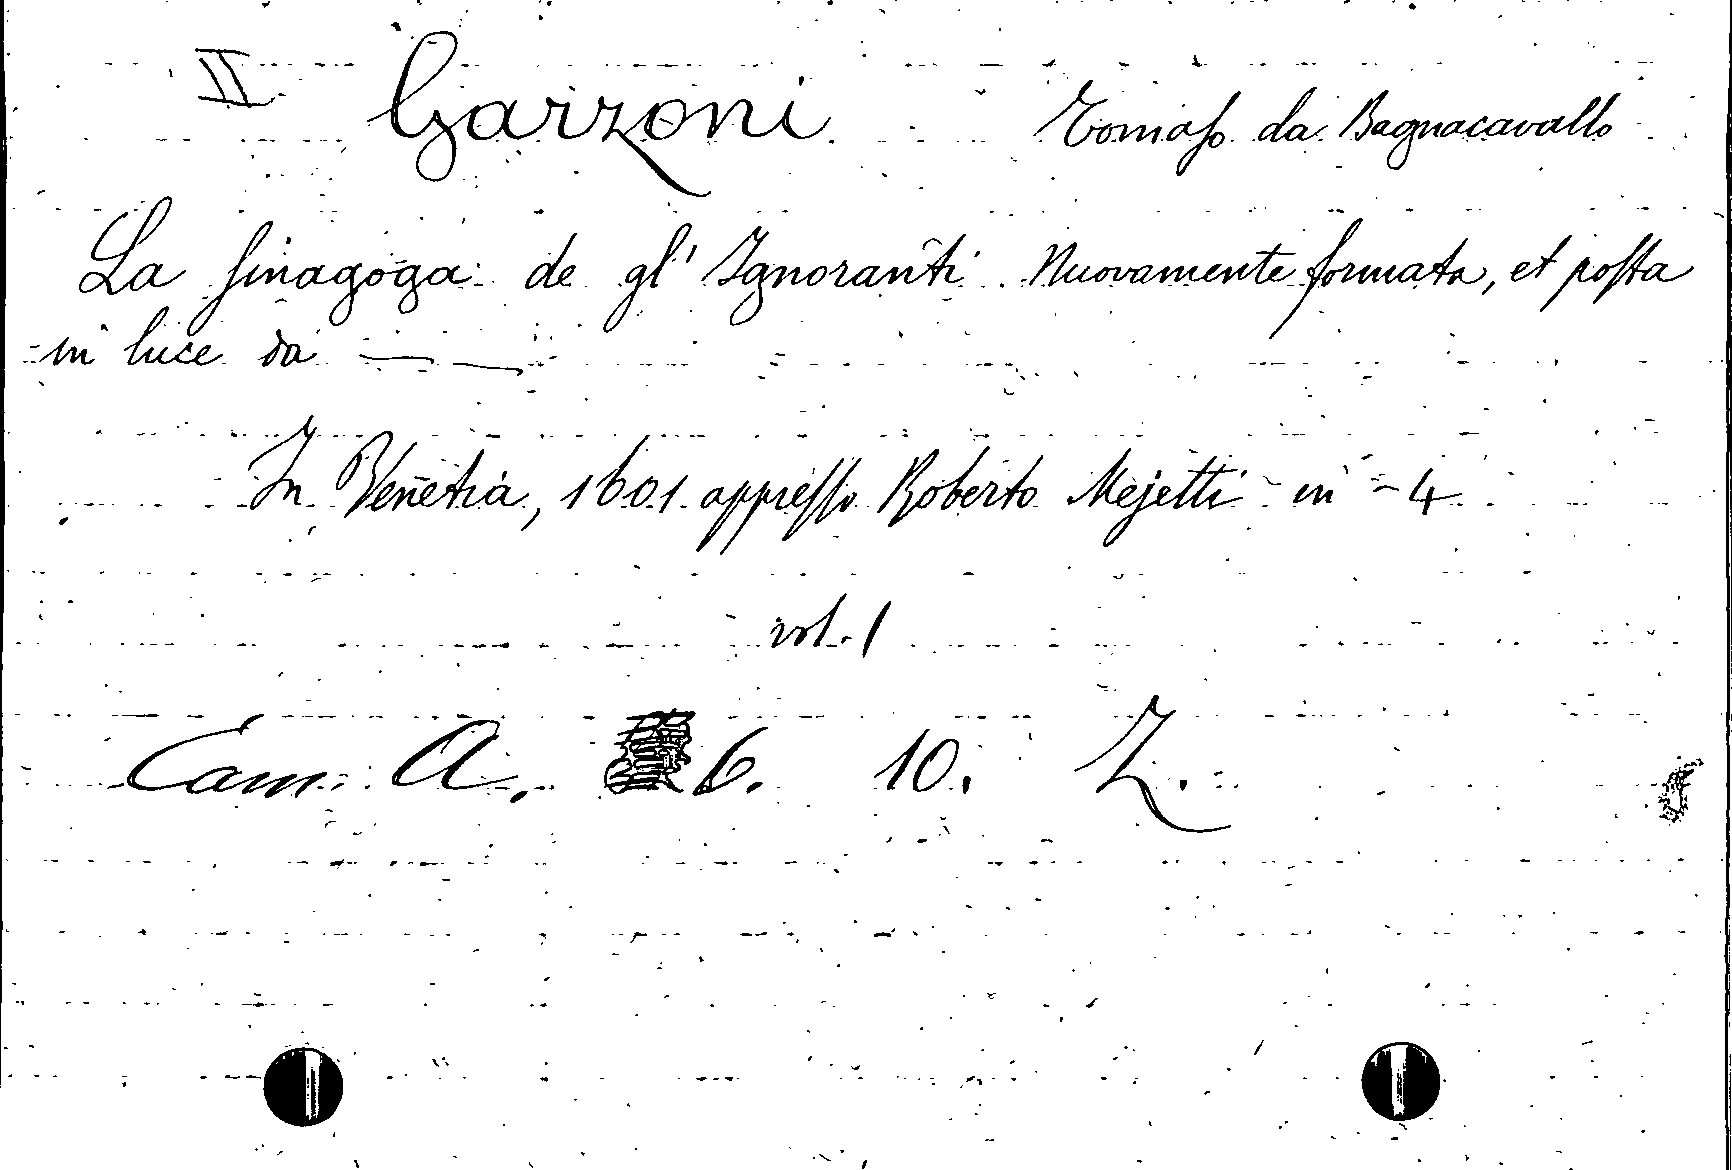 II Garzoni Tomaſo da Bagnacavallo
La ſinagoga de gl' Ignoranti. Nuovamente formata, et poſta
in luce da — —
In Venetia, 1601. appreſſo Roberto Mejetti in - 4
vol. 1
Cam. A. 6. 10. Z.